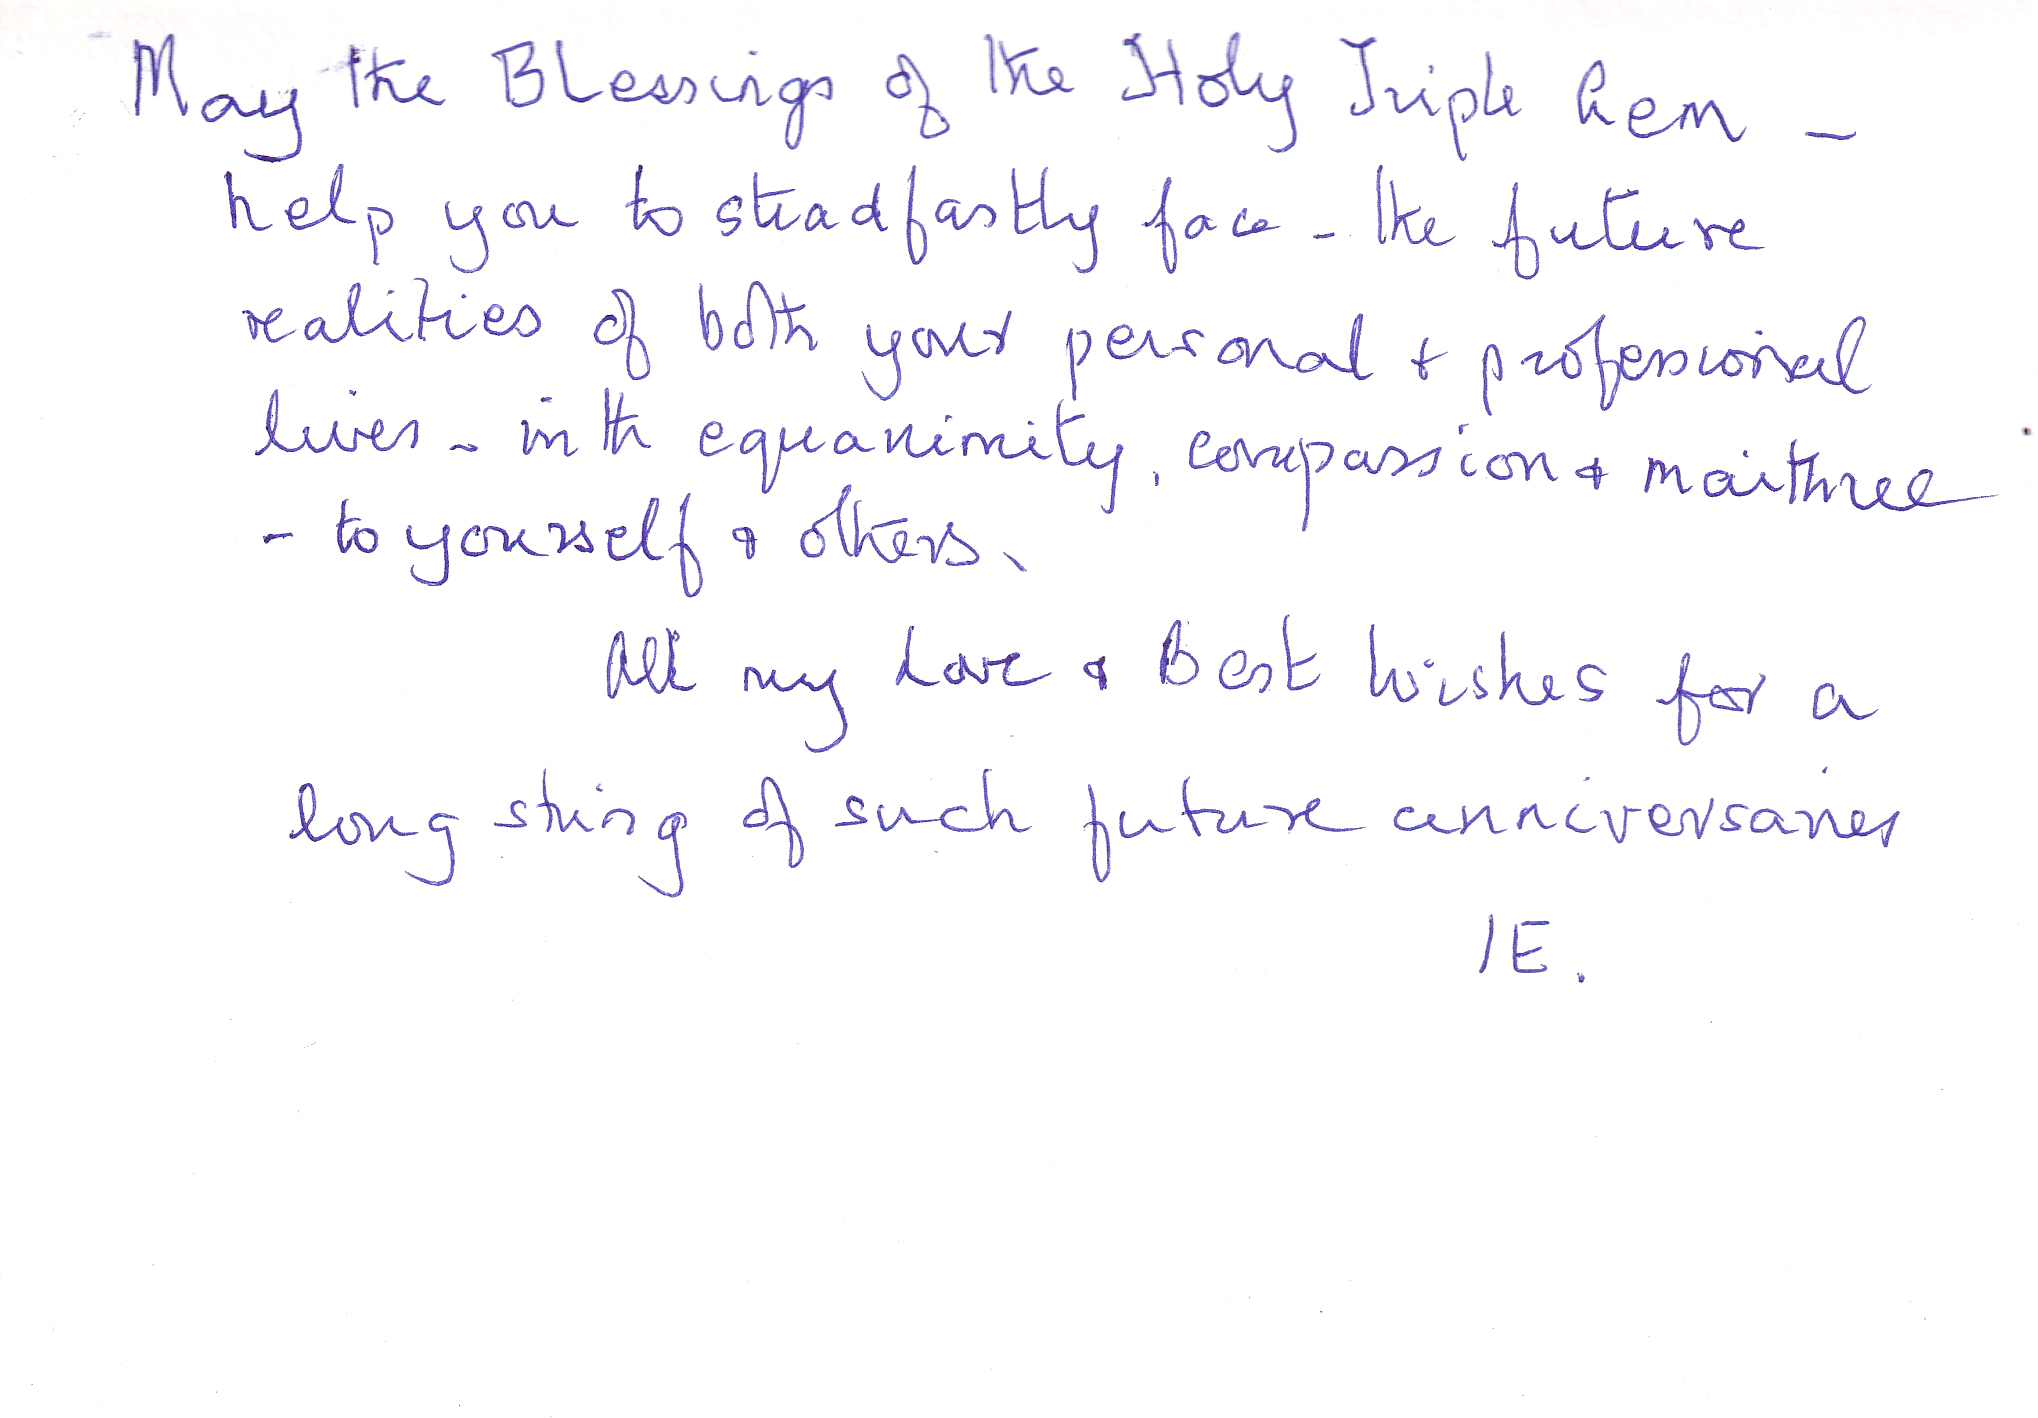 May the Blessings of the Holy Triple Gem -
help you to steadfastly face - the future
realities of both your personal & professional
lives - with equanimity, compassion & maithree
- to yourself & others.
All my Love & Best Wishes for a
long string of such future anniversaries
IE.